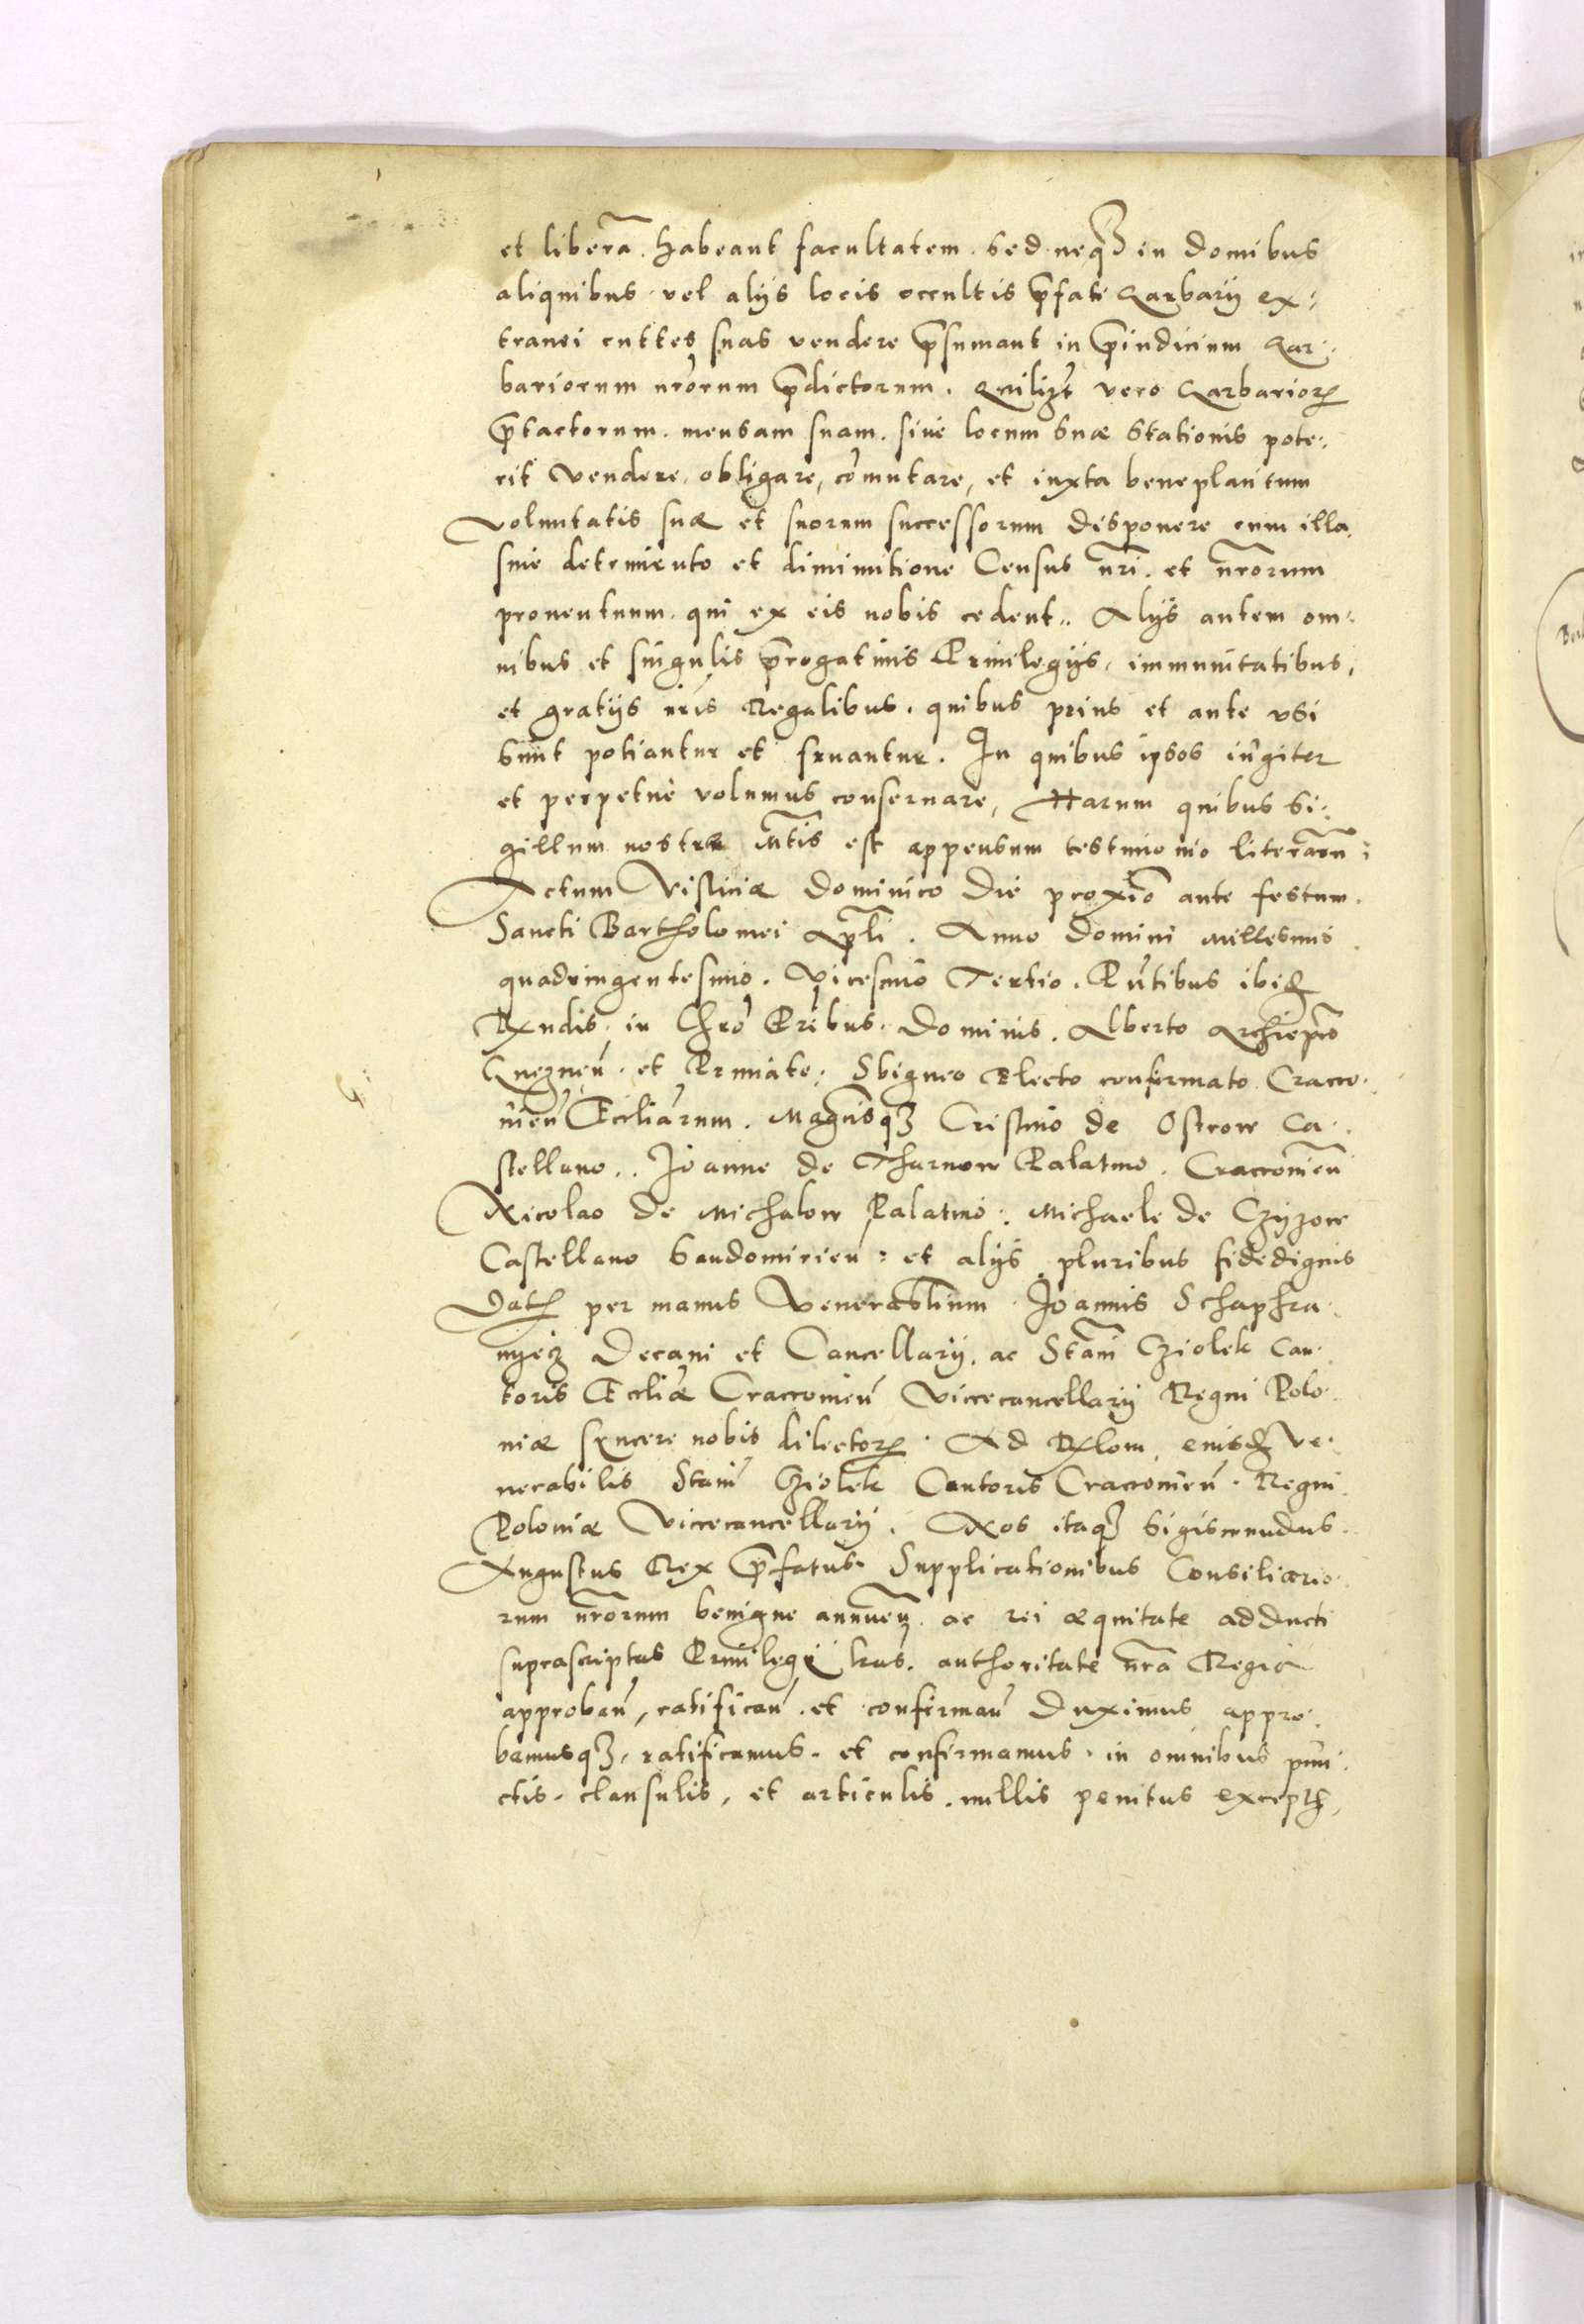 et liberã habeant facultatem. Sed neqȝ in domibus
aliquibus vel alijs locis occultis p̃fati Garbarij ex:
tranei cuttes suas vendere p̃sumant in p̃iudicium Gar:
bariorum nr̃orum p̃dictorum. Quilizt vero Garbarioꝝ
p̃tactorum. mensam suam. siue locum suæ stationis pote:
rit vendere, obligare, cõmutare, et iuxta beneplacitum
voluntatis suæ et suorum successorum disponere cum illa.
sine detrimento et diminutione Census nr̃i. et nr̃orum
prouentuum. qui ex eis nobis cedent. Alijs autem om:
nibus et singulis p̃rogatiuis Priuilegijs, immunitatibus,
et gratijs nr̃is Regalibus. quibus prius et ante vsi
sunt potiantur et fruantur. In quibus ipsos iugiter
et perpetuè volumus conseruare, Harum quibus Si:
gillum nostræ Mt̃is est appensum testimonio literarũ:
Actum Visliciæ Dominico die proxiõ ante festum.
Sancti Bartholomei Ap̃li. Anno Domini Millesimo.
quadringentesimo. Vicesimo Tertio. Pñtibus ibiđ
Rx̃ndis. in Chr̃o Pr̃ibus. Dominis. Alberto Archiep̃o
Gneznen̄. et Primate: Sbigneo Electo confirmato Craco:
uien̄ Eccliãrum. Magñisqȝ Cristino de Ostrow Ca:
stellano.. Joanne de Tharnow Palatino. Cracouien̄
Nicolao de Michalow Palatino: Michaele de Czyzow
Castellano Sandomirien̄: et alijs pluribus fidedignis
Datꝭ per manus Venerabilium Joannis Schaphra:
nyecz Decani et Cancellarij. ac Stãni Cziolek Can:
toris Eccliæ Cracouien̄ Vicecancellarij Regni Polo:
niæ syncere nobis dilectoꝝ. Ad Rx̃lom eiusđ Ve:
nerabilis Stañi Cziolek Cantoris Cracouien̄. Regni
Poloniæ Vicecancellarij. Nos itaqȝ Sigismundus.
Augustus Rex p̃fatus. Supplicationibus Consiliario:
rum nr̃orum benigne annuen̄. ac rei æquitate adducti
suprascriptas Priuilegij lrãs. authoritate nr̃a Regia
approban̄, ratifican̄. et confirman̄ duximus appro:
bamusqȝ, ratificamus. et confirmamus. in omnibus pun:
ctis. clausulis, et articulis. nullis penitus exceptꝭ,